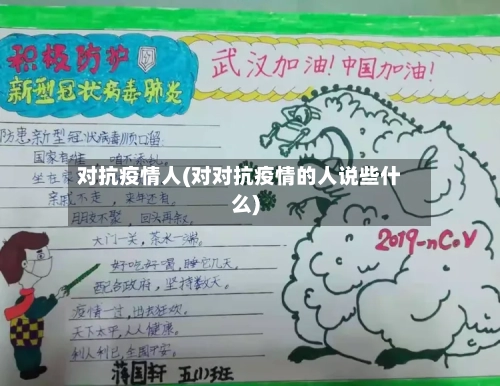 积极防护
新型冠状病毒肺炎
武汉加油！中国加油！
防患新型冠状病毒顺口溜
国家有难，咱不添乱。
坐在家
对抗疫情人(对对抗疫情的人说些什
么)
亲戚不走，来年还有。
朋友不聚，回头再叙。
大门一关，茶水一端。
好吃好喝，睡它几天。
配合政府，坚持数天。
疫情一过，出去狂欢。
天下太平，人人健康。
利人利己，全国平安。
2019-nCoV
蒋国轩 五(1)班